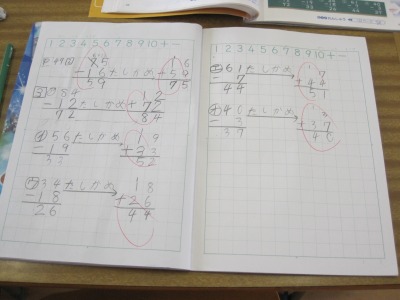 1 2 3 4 5 6 7 8 9 10 + −
75 たしかめ 16
−16 → +59
59 75
84 たしかめ 12
−12 → +72
72 84
56 たしかめ 19
−19 → +33
33 52
34 たしかめ 18
−18 → +26
26 44
1 2 3 4 5 6 7 8 9 10 + −
61 たしかめ 7
− 7 → +44
44 51
40 たしかめ 3
− 3 → +37
37 40